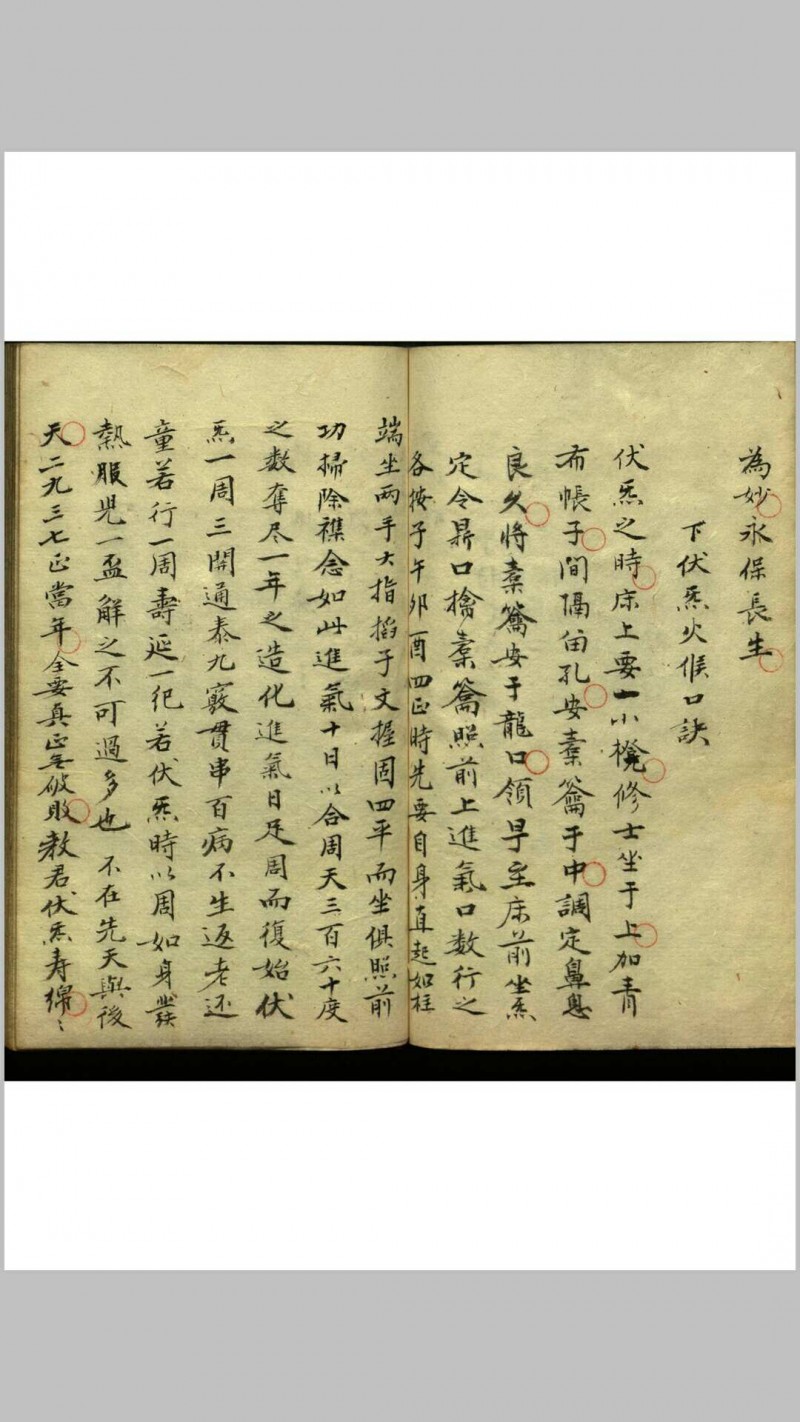 為妙永保長生
下伏炁火候口訣
伏炁之時床上要一小櫈修士坐于上加青
布帳子間隔留孔安橐籥于中調定鼻息
良久將橐籥安于龍口領早至床前坐炁
定令鼎口擒橐籥照前上進氣口数行之
各按子午卯酉四正時先要自身直起如柱
端坐兩手大指掐子文握固四平而坐俱照前
功掃除襍念如此進氣十日以合周天三百六十度
之数奪尽一年之造化進氣日足周而復始伏
炁一周三関通泰九竅貫串百病不生返老还
童若行一周壽延一纪若伏炁時以周如身發
熱服児一盃解之不可過多也 不在先天與後
天二九三七正當年全要真正無破敗教君伏炁寿綿〻